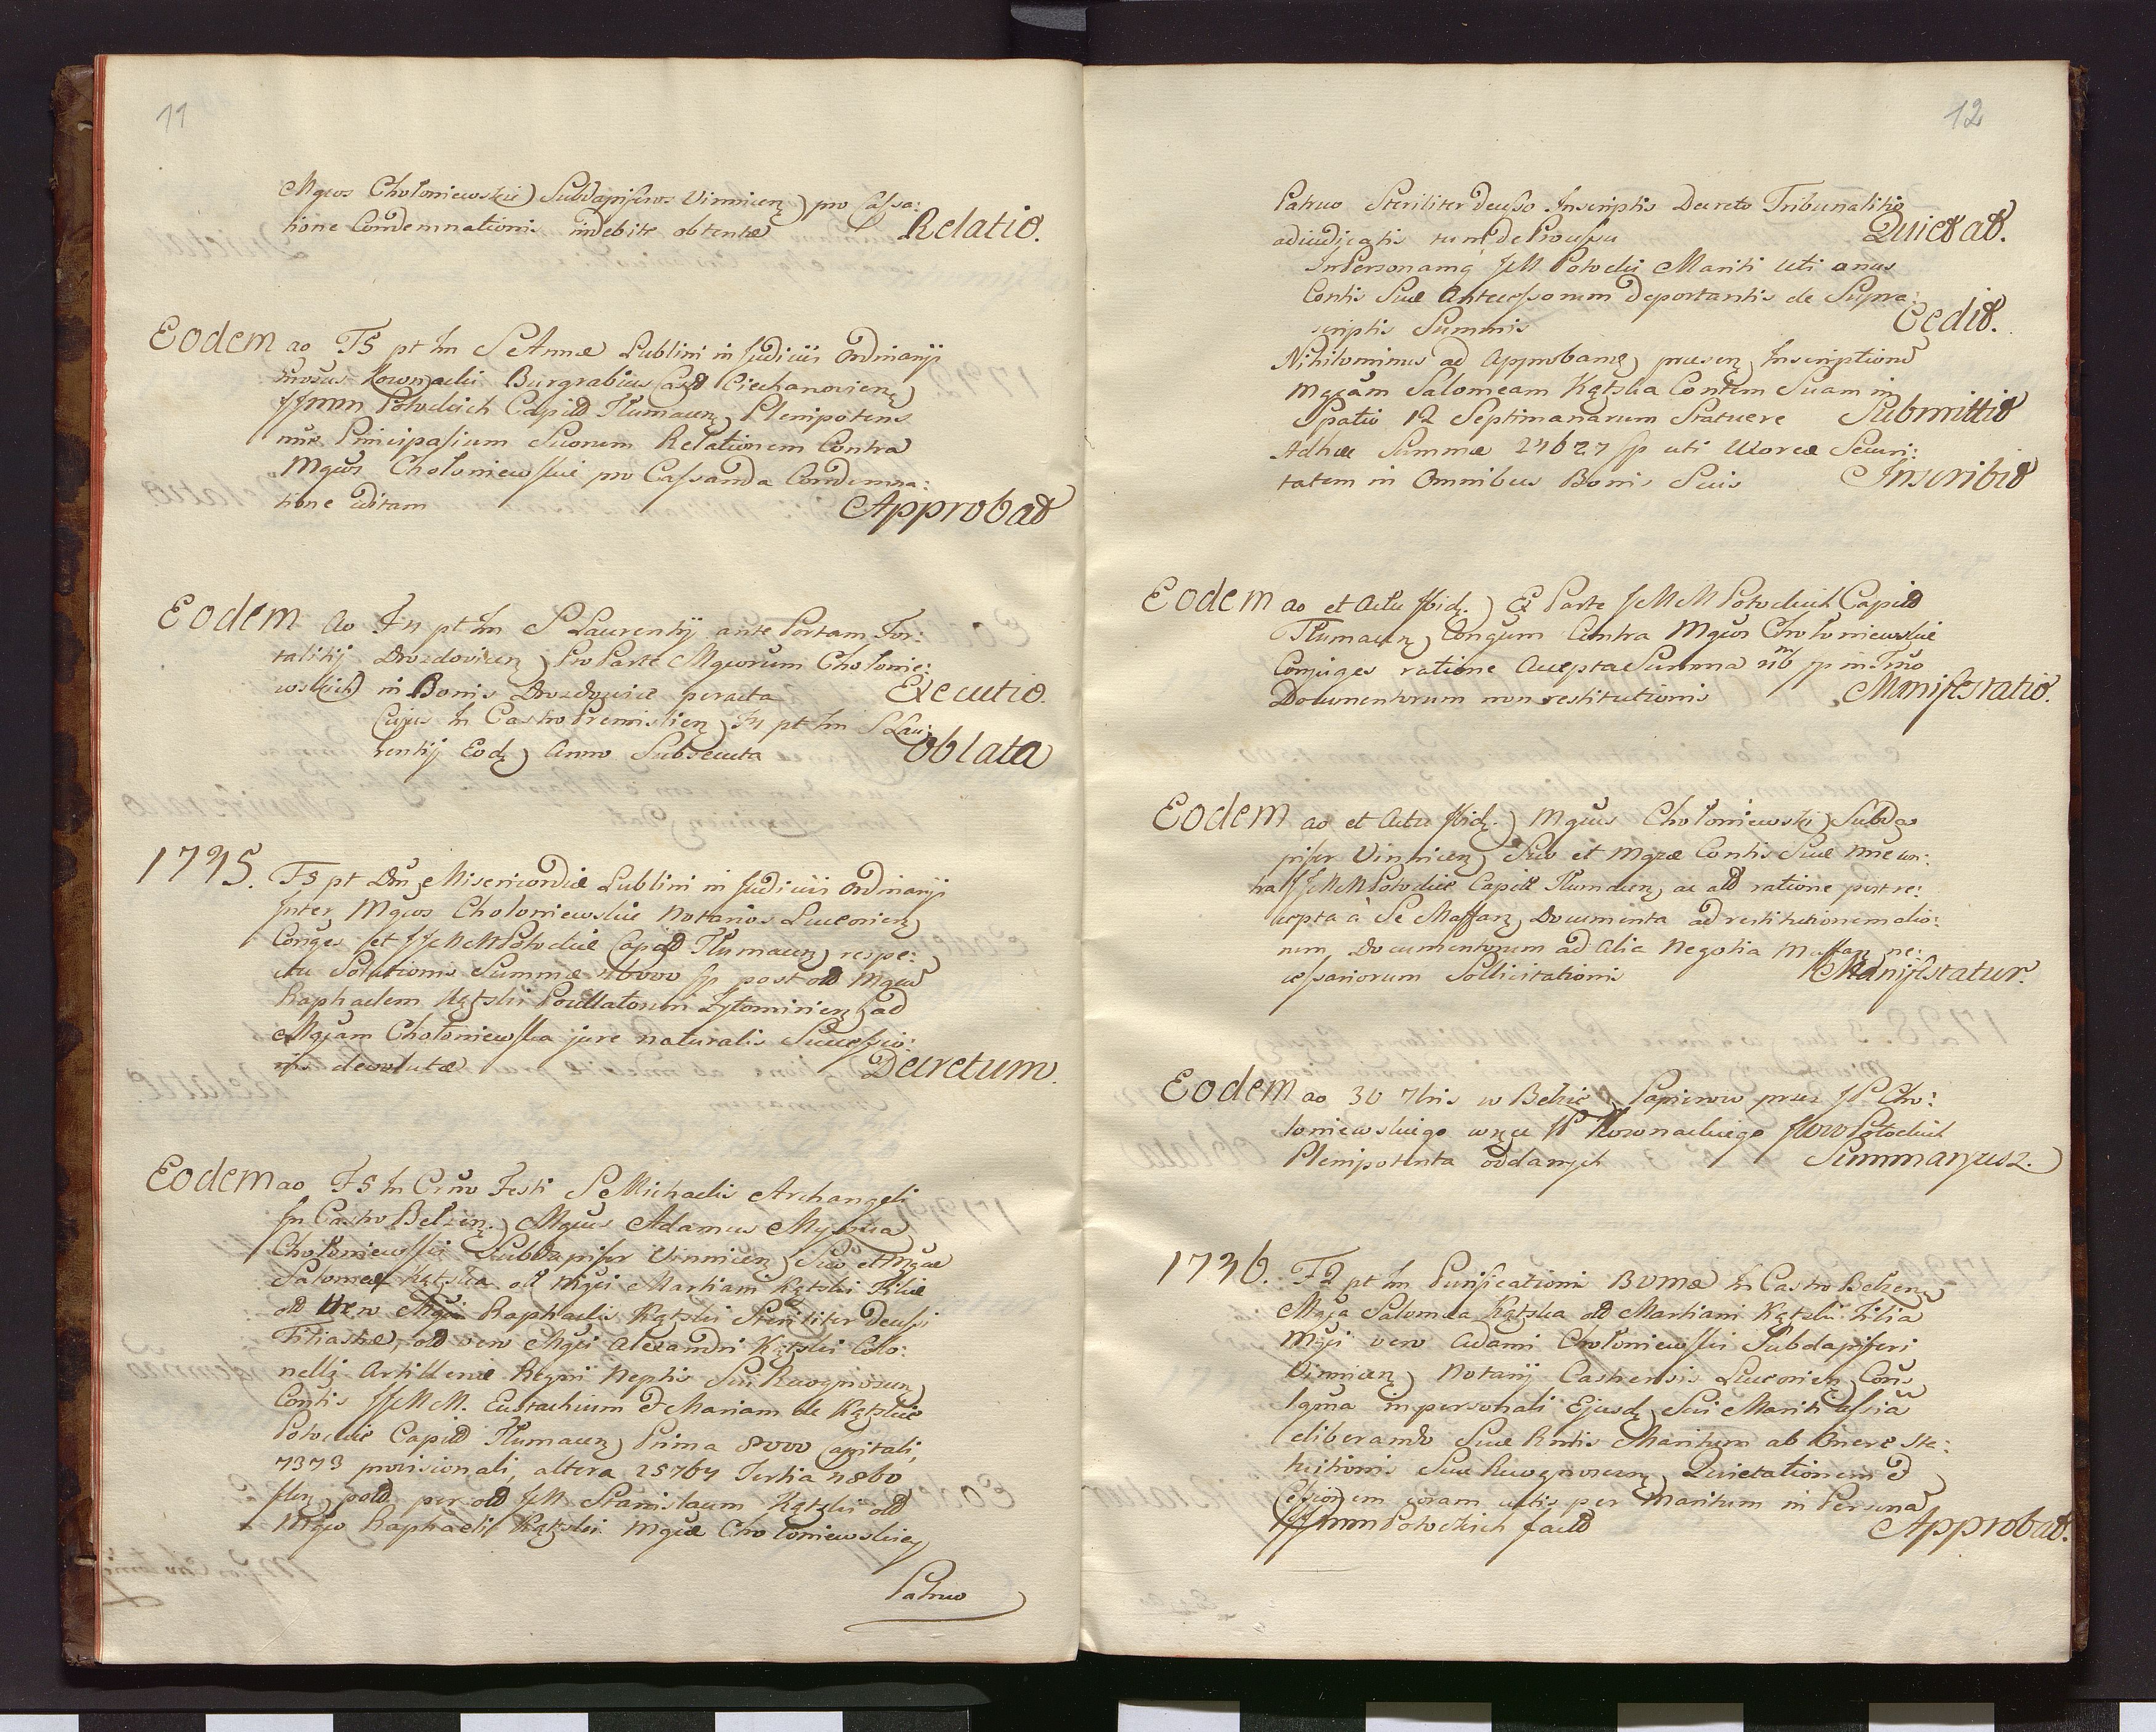 11
Mgcos Chołoniewskie Subdapiferos Vinnicen pro Cassa:
tione Condemnationis indebite obtentæ Relatio.
Eodem ao F5 pt In S Annæ Lublini in Judiciis Ordinarijs
Kownacki Burgrabius Ciechanovien
Potockich Capit Tłumacen Plenipotens
nme Principalium Suorum Relationem Contra
Mgcos Chołoniewskie pro Cassanda Condemna:
tione editam Approbat
Eodem Ao F4 pt In S Laurentij ante Portam For:
talitij Drozdovicen Pro Parte Mgcorum Chołonie:
wskich in Bonis Drozdowice peracta Executio.
Cujus In Castro Premislien F4 pt In S Lau:
rentij Eod Anno Subsecuta Oblata
1745. F5 pt Dm Misericordiæ Lublini in Judiciis Ordinarijs
Inter Mgcos Chołoniewskie Notarios Luceorien
Conges et JJMM Potockie Capit Tłumacen respe:
ctu Solutionis Summæ 46000 fp post olt Mgcu
Raphaelem Kątski Pocillatorem Zytomirien ad
Mgcam Chołoniewska jure naturalis Successio:
nis devolutæ Decretum.
Eodem ao F5 In Crno Festi S Michaelis Archangeli
In Castro Belzen. Mgcus Adamus Myszka
Chołoniewski Subdapifer Vinnicen Suo et Mgcæ
Salomeæ Kątska olt Mgci Martiani Kątski Filiæ
olt vero Mgci Raphaelis Kątski Steriliter Decessi
Filiastræ, olt vero Mgci Alexandri Kątski Colo:
nelli Artilleriæ Regni Neptis Sui Recognoscen
Contis JJMM. Eustachium et Mariam de Kątskie
Potockie Capit Tłumacen Prima 8000 Capitali,
7373 provisionali, altera 25764 Tertia 4860
flen polt per olt JM Stanislaum Kątski olt
Mgco Raphaeli Kątski Mgcæ Chołoniewskiey
Patruo
12
Patruo Steriliter Decesso Inscriptis Decreto Tribunalitio
adiudicatis tum de Processu Quietat.
In Personamq JM Potocki Mariti uti onus
Contis Suæ Antecessorum deportantis de Supra:
scriptis Summis Cedit.
Nihilominus ad Approbam præsen Inscriptione
Mgcam Salomeam Kątska Contem Suam in
Spatio 12 Septimanarum Statuere Submittit
Adhæc Summæ 24627 fp uti Uxoreæ Securi:
tatem in Omnibus Bonis Suis Inscribit
Eodem ao et Actu Ibid. Ex Parte JMM Potockich Capit
Tłumacen Congum Contra Mgcos Chołoniewskie
Conjuges ratione Accepta Summa fp in Fruo
Documentorum non restitutionis Manifestatio.
Eodem ao et Actu Ibid. Mgcus Chołoniewski Subda
pifer Vinnicen Suo et Mgcæ Contis Suæ nnie con:
tra JJMM Potockie Capit Tłumacen ac alt ratione post re:
cepta à Se Massam Documenta ad restitutionem alio:
rum Documentorum ad Alia Negotia Massam ne:
cessariorum Sollicitationis Manifestatur.
Eodem ao 30 7bris w Bełzie Papierow przez JP Cho:
łoniewskiego w ręce JP Kownackiego JWW Potockich
Plenipotenta oddanych Summaryusz.
1746. F2 pt In Purificationis BVMæ In Castro Belzen
Mgca Salomea Kątska olt Martiani Kątski Filia
Mgci vero Adami Chołoniewski Subdapiferi
Vinnicen Notarij Castrensis Luceorien Cons
Igma in personali Ejusd Sui Mariti assia
eliberando Suæ Rntis Maritum ab Onere sta:
tuitionis Suæ Recognoscen Quietationem et
Cessionem coram actis per Maritum in Persona
JJMM Potockich fact Approbat.